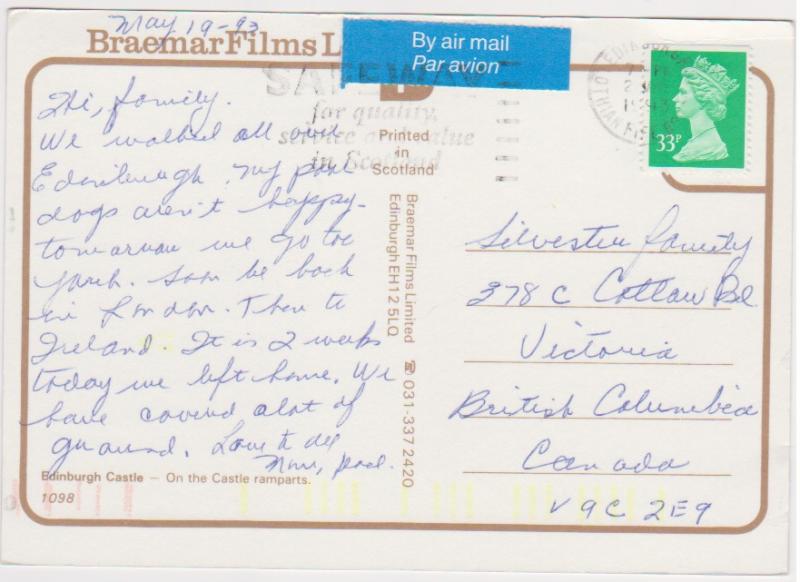 May 19-93
Braemar Films L
By air mail
Par avion
SAFEWAY
for quality,
service and value
in Scotland
EDINBURGH
33P
Printed
in
Scotland
Hi, family.
We walked all over
Edinburgh. My poor
dogs aren't happy-
tomorrow we go to
York. Soon be back
in London. Then to
Ireland. It is 2 weeks
today we left home. We
have covered alot of
ground. Love to all
Mom,
Edinburgh Castle – On the Castle ramparts.
1098
Braemar Films Limited ☎ 031-337 2420
Edinburgh EH12 5LQ
Silvester family
378 C
Victoria
British Columbia
Canada
V9C 2E9